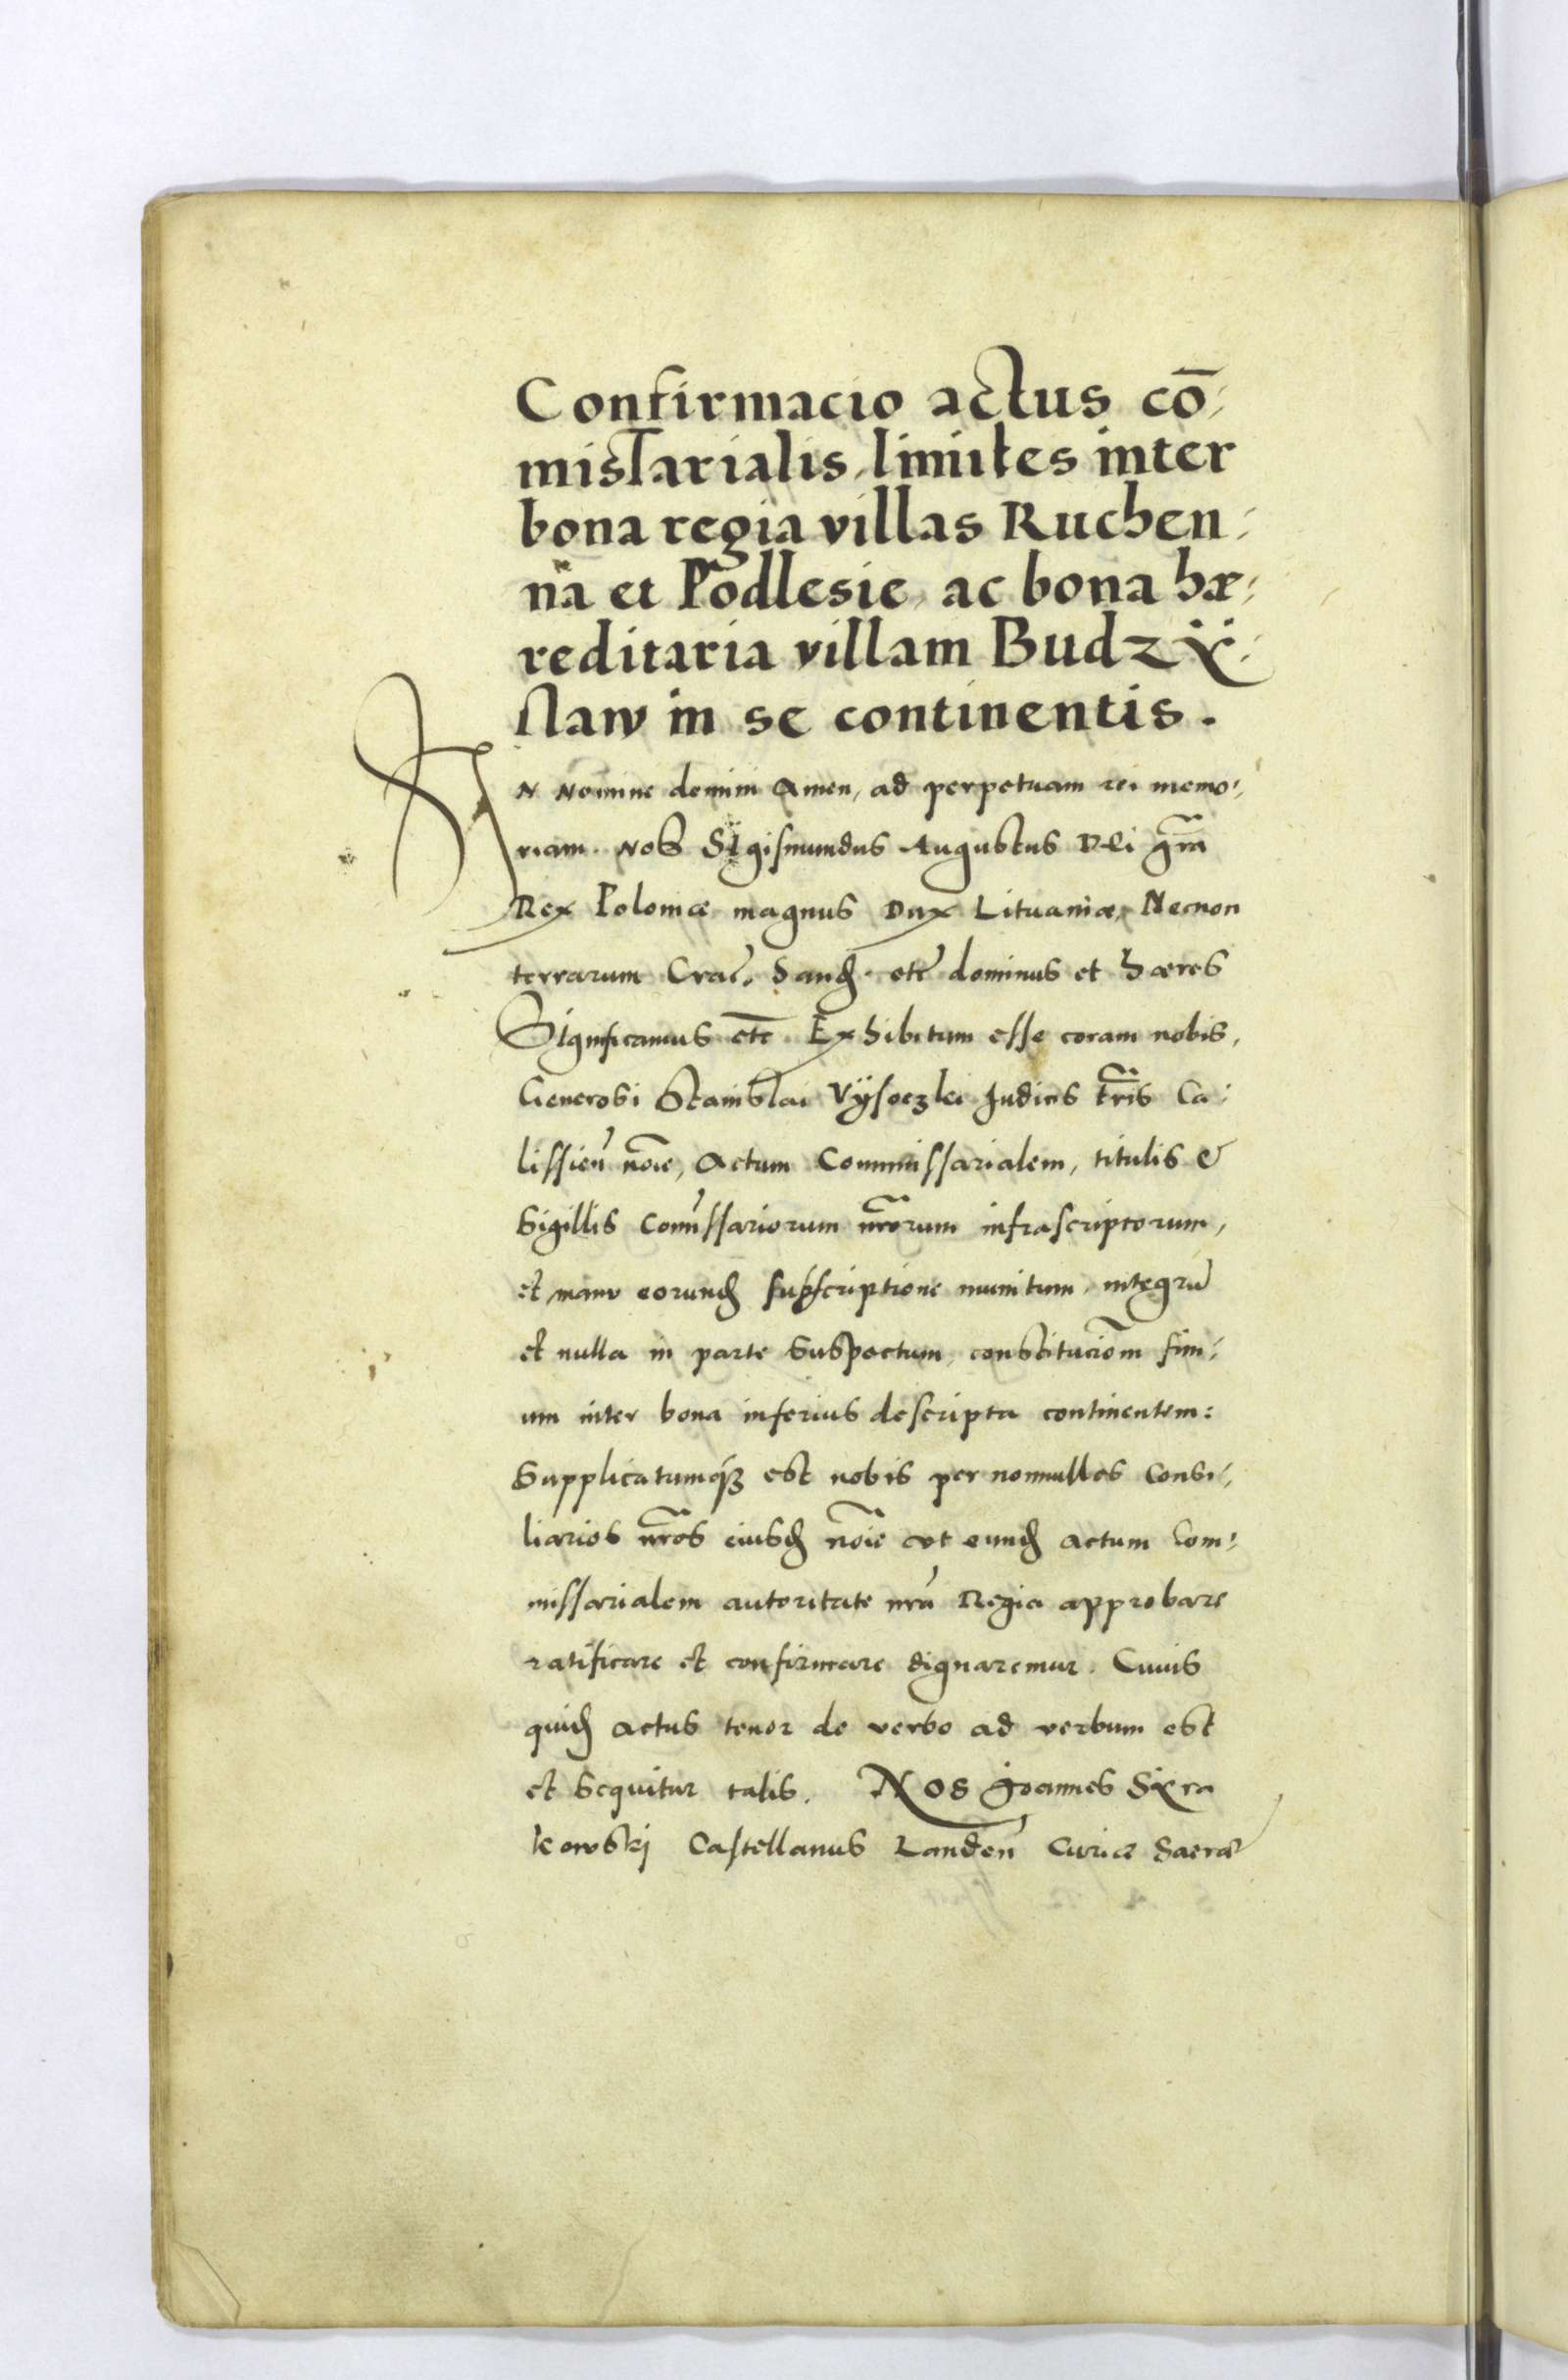 Confirmacio actus cō:
missarialis, limites inter
bona regia villas Ruchen:
na et Podlesie, ac bona hæ:
reditaria villam Budzÿ:
slaw in se continentis.
IN Nomine domini Amen, ad perpetuam rei memo:
riam. Nos Sigismundus Augustus Dei gra͂
Rex Poloniæ magnus Dux Lituaniæ, Necnon
terrarum Crac̃. Sand. etc̃ dominus et hæres
Significamus etc̃. Exhibitum esse coram nobis,
Generosi Stanislai Vÿsoczki Iudicis tr̃ris Ca:
lissien̄ no͂ie, Actum Commissarialem, titulis &
Sigillis Com̄issariorum nr͂orum infrascriptorum,
et manu eorund subscriptione munitum, integrū
et nulla in parte suspectum, constitucio͂m fini:
um inter bona inferius descripta continentem:
Supplicatumqꝫ est nobis per nonnullos Consi:
liarios nr͂os eiusd no͂ie vt eund actum Com:
missarialem autoritate nr̄a Regia approbare
ratificare et confirmare dignaremur. Cuius
quid actus tenor de verbo ad verbum est
et sequitur talis. Nos Joannes Sÿra
kowski Castellanus Landen̄ Curiæ Sacræ